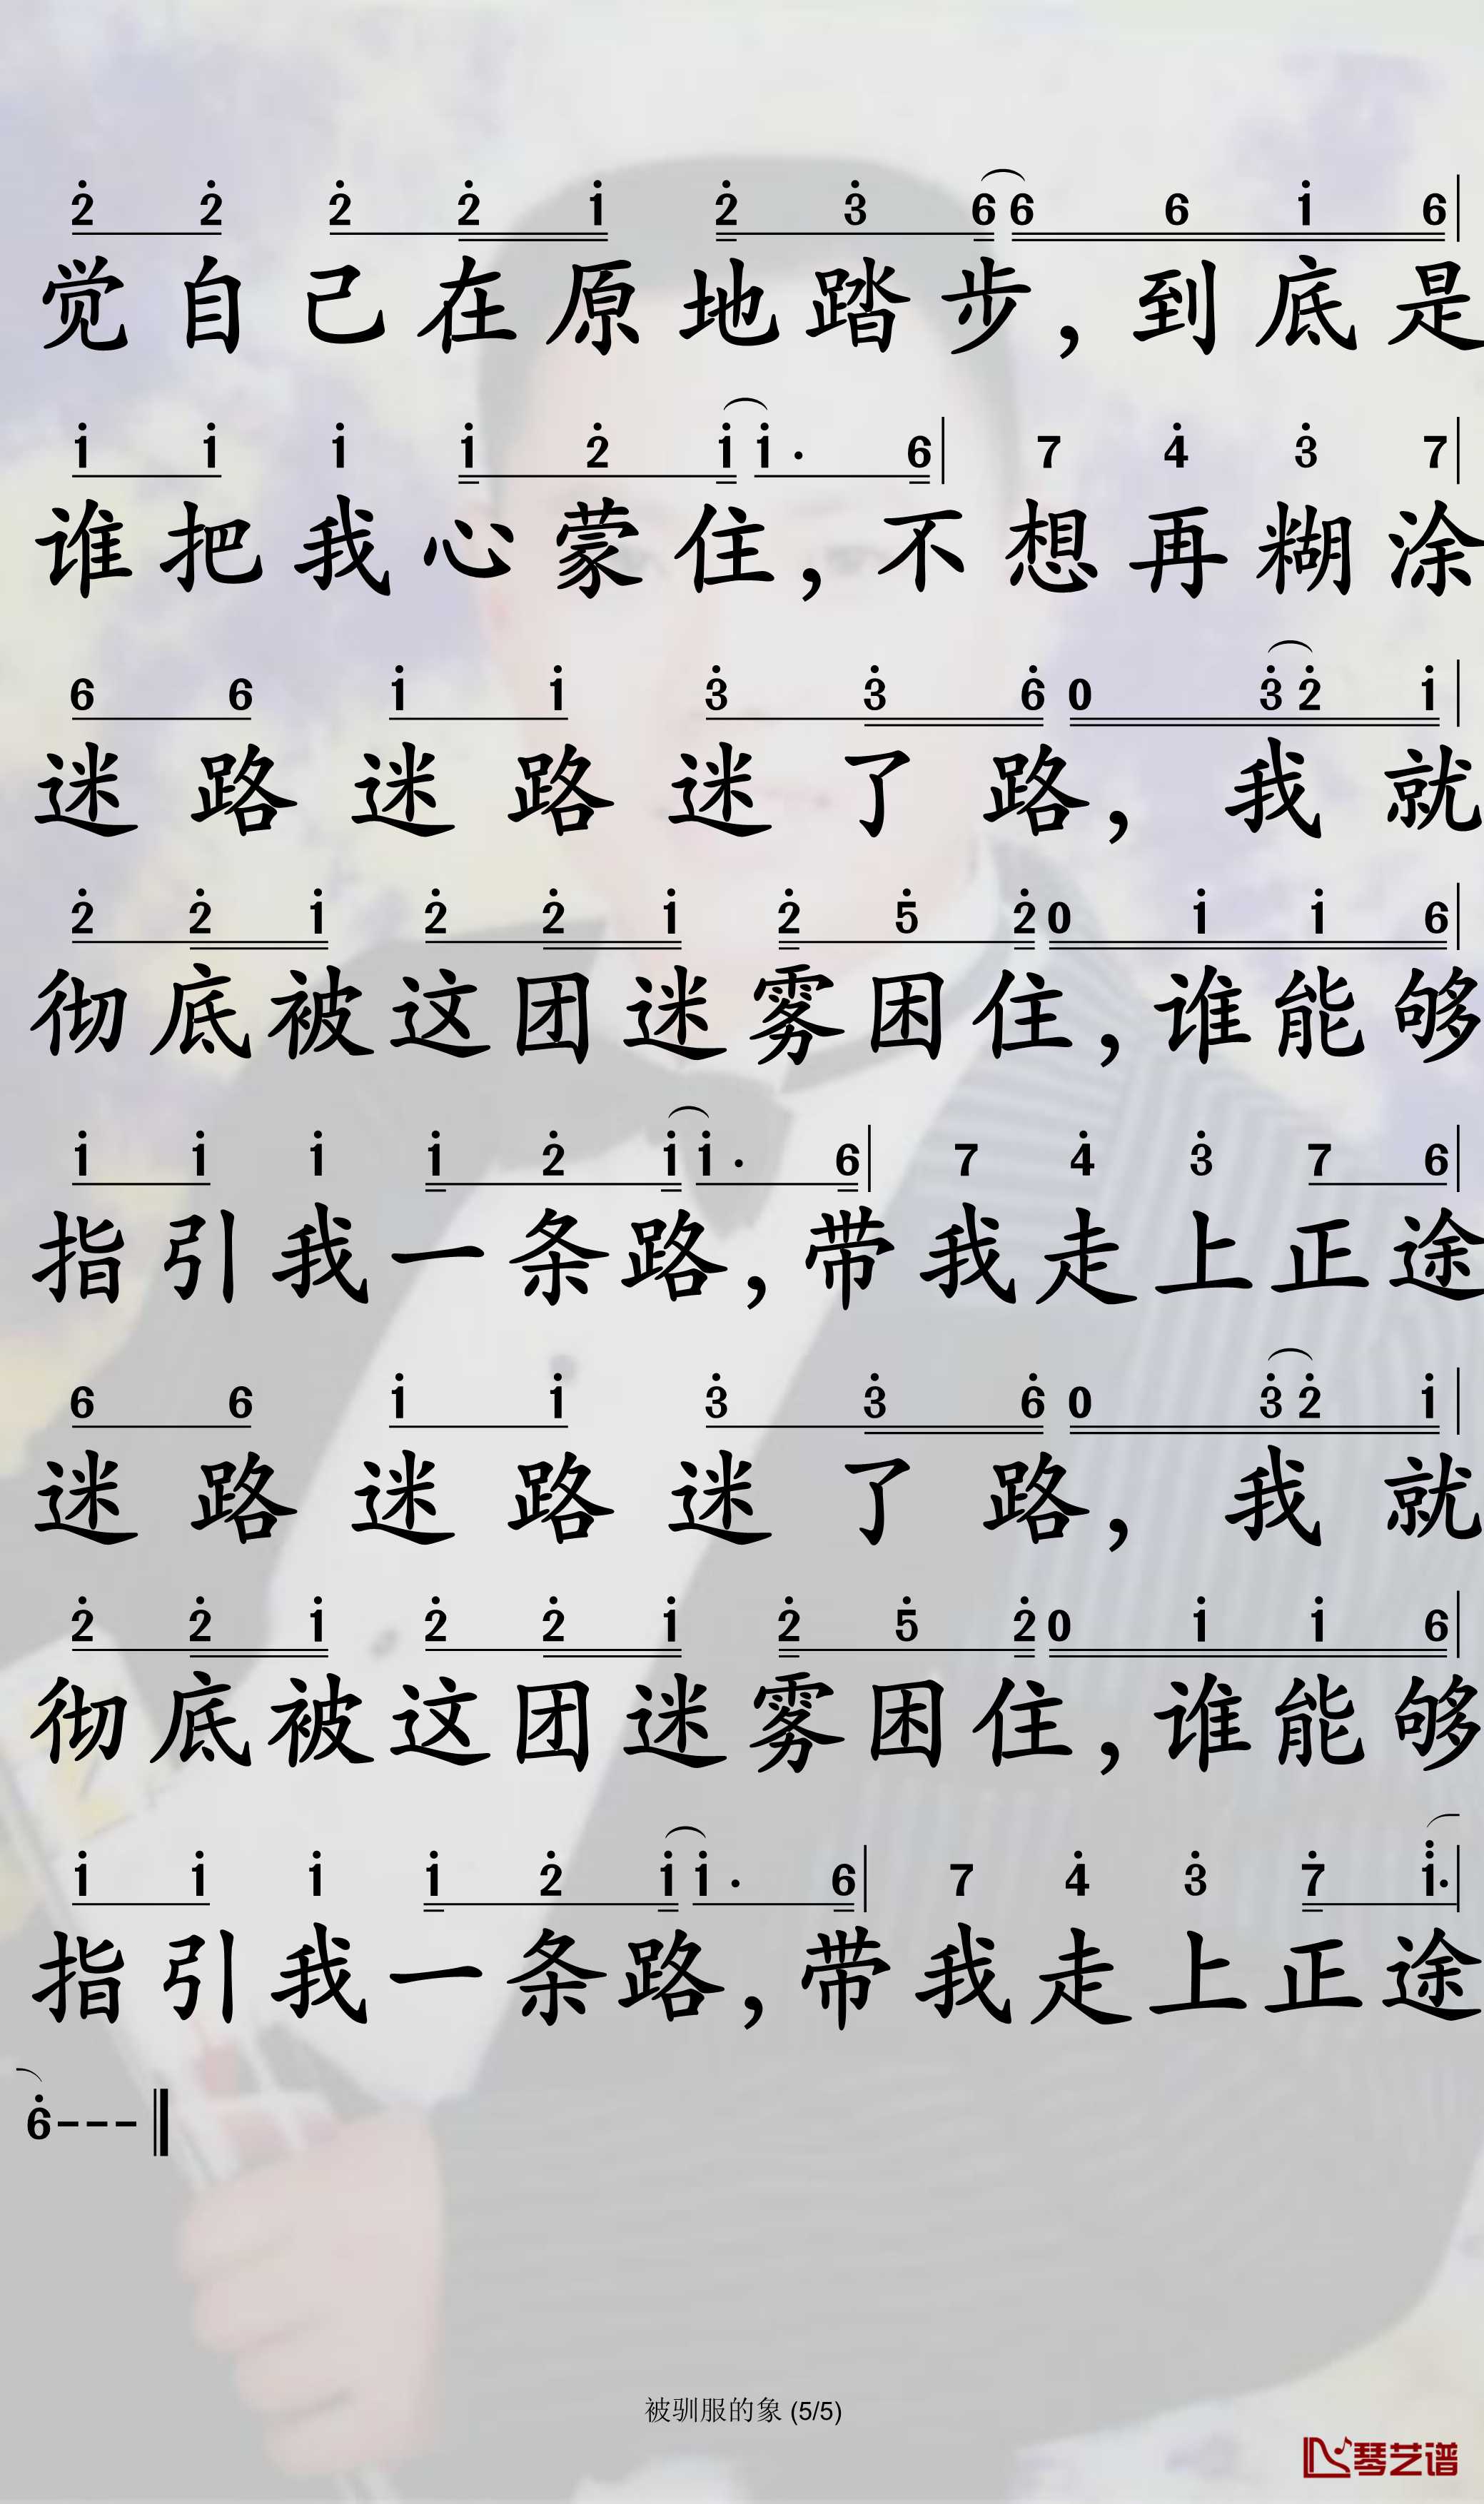 2̇ 2̇ 2̇ 2̇ 1̇ 2̇ 3̇ 6 6 6 1̇ 6|
觉自己在原地踏步，到底是
1̇ 1̇ 1̇ 1̇ 2̇ 1̇ 1̇· 6| 7 4̇ 3̇ 7|
谁把我心蒙住，不想再糊涂
6 6 1̇ 1̇ 3̇ 3̇ 6̇ 0 3̇ 2̇ 1̇|
迷路迷路迷了路，我就
2̇ 2̇ 1̇ 2̇ 2̇ 1̇ 2̇ 5̇ 2̇ 0 1̇ 1̇ 6|
彻底被这团迷雾困住，谁能够
1̇ 1̇ 1̇ 1̇ 2̇ 1̇ 1̇· 6| 7 4̇ 3̇ 7 6|
指引我一条路，带我走上正途
6 6 1̇ 1̇ 3̇ 3̇ 6̇ 0 3̇ 2̇ 1̇|
迷路迷路迷了路，我就
2̇ 2̇ 1̇ 2̇ 2̇ 1̇ 2̇ 5̇ 2̇ 0 1̇ 1̇ 6|
彻底被这团迷雾困住，谁能够
1̇ 1̇ 1̇ 1̇ 2̇ 1̇ 1̇· 6| 7 4̇ 3̇ 7̇ 1̈·|
指引我一条路，带我走上正途
6̇---‖
被驯服的象 (5/5)
琴艺谱